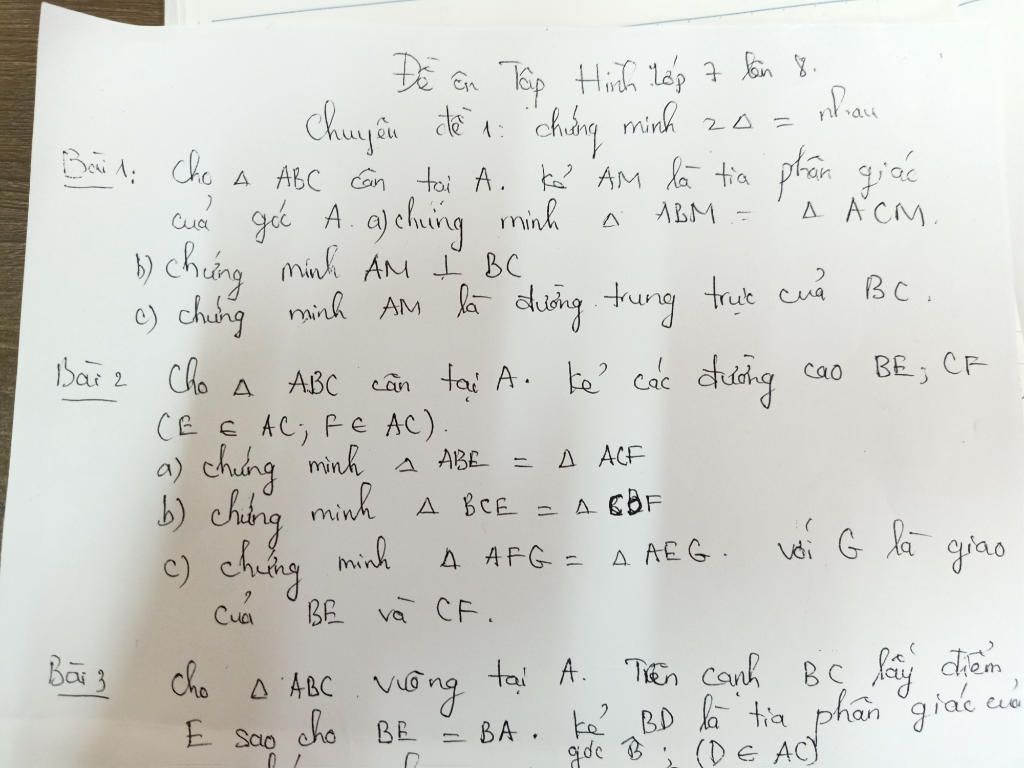 Đề ôn Tập Hình lớp 7 lần 8.
Chuyên đề 1: chứng minh 2 Δ = nhau
Bài 1: Cho Δ ABC cân tại A. kẻ AM là tia phân giác
của góc A. a) chứng minh Δ ABM = Δ ACM.
b) chứng minh AM ⊥ BC
c) chứng minh AM là đường trung trực của BC.
Bài 2 Cho Δ ABC cân tại A. kẻ các đường cao BE; CF
(E ∈ AC; F ∈ AC).
a) chứng minh Δ ABE = Δ ACF
b) chứng minh Δ BCE = Δ CBF
c) chứng minh Δ AFG = Δ AEG. với G là giao
của BE và CF.
Bài 3 Cho Δ ABC vuông tại A. Trên cạnh BC lấy điểm
E sao cho BE = BA. kẻ BD là tia phân giác của
góc B̂; (D ∈ AC)